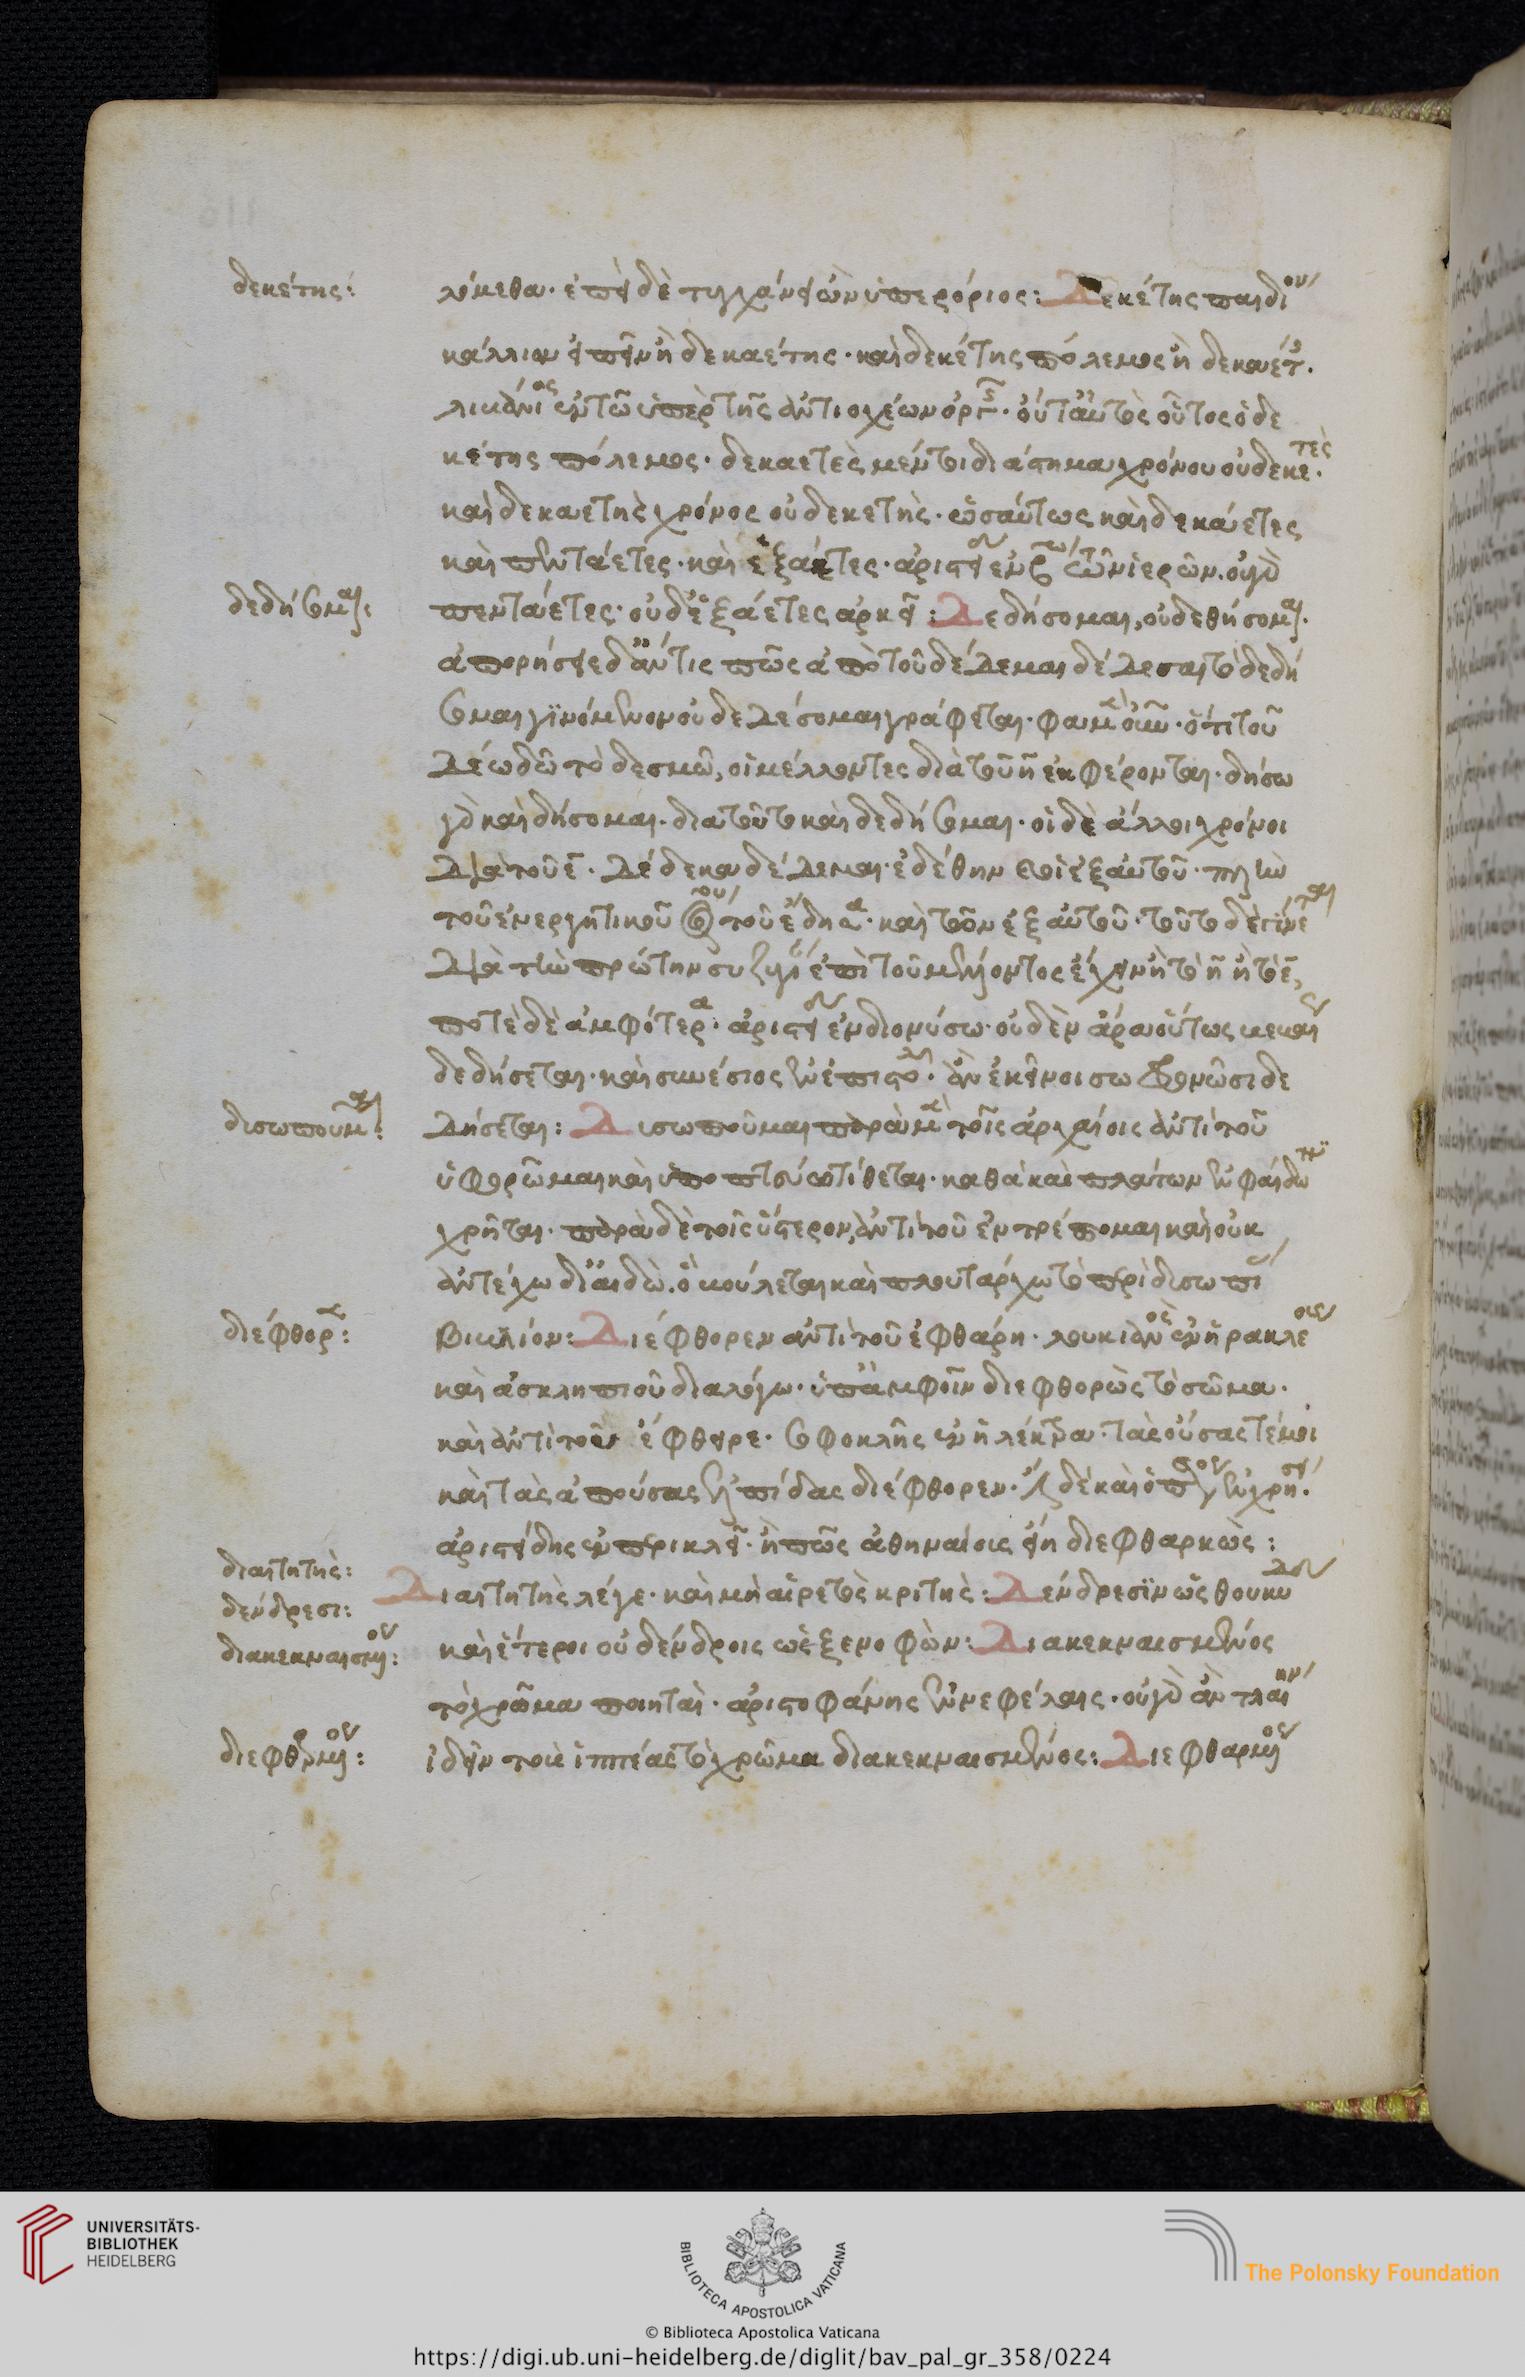 δεκέτης:
λούμεθα. ἐπεὶ δὲ τυγχάνει ὢν ὑπερόριος: Δεκέτης παιδίον
κάλλιον εἰπεῖν ἢ δεκαέτης. καὶ δεκέτης πόλεμος ἢ δεκαέτ.
ἐν τῶ ὑπὲρ τῆς ἀντιοχέων ὀργῆς. οὗτος ὁ δε
κέτης πόλεμος. δεκαετὲς μέντοι διάστημα χρόνου οὐ δεκετὲς.
καὶ δεκαετὴς χρόνος οὐ δεκετὴς. ὡσαύτως καὶ δεκάετες
καὶ πεντάετες. καὶ ἑξάετες. ἀριστείδης ἐν ἱερῶν. οὐ γὰρ
δεδήσομαι:
πεντάετες. οὐδ' ἑξάετες ἀρκεῖ: Δεδήσομαι, οὐ δεθήσομαι.
ἀπορήσειε δ' ἄν τις πῶς ἀπὸ τοῦ δέδεμαι δέδεσαι τὸ δεδή
σομαι γινόμενον οὐ δεδέσομαι γράφεται. φαμὲν οὖν. ὅτι τοῦ
δέω δῶ τὸ δεσμῶ, οἱ μέλλοντες διὰ τοῦ η ἐκφέρονται. δήσω
γὰρ καὶ δήσομαι. διατοῦτο καὶ δεδήσομαι. οἱ δὲ ἄλλοι χρόνοι
διὰ τοῦ ε. δέδεκα δέδεμαι. ἐδέθην καὶ οἱ ἐξ αὐτοῦ. πλὴν
τοῦ ἐνεργητικοῦ τοῦ ἔδησα. καὶ τῶν ἐξ αὐτοῦ. τοῦτο δὲ γίνεται
διὰ τὴν πρώτην συζυγίαν ἐπὶ τοῦ μέλλοντος ἔχειν ἢ τὸ η ἢ τὸ ε,
ποτὲ δὲ ἀμφότερα. ἀριστείδης ἐν διονύσω. οὐδὲν ἄρα οὕτως
δεδήσεται. καὶ συνέσιος ἐν ἐπιστολαῖς. ἂν ἐκεῖνοι σωφρονῶσι δε
δισωποῦμαι:
δήσεται: Δισωποῦμαι παρὰ μὲν τοῖς ἀρχαίοις ἀντὶ τοῦ
ὑφορῶμαι καὶ ὑποπτεύω τίθεται. καθὰ καὶ πλάτων ἐν φαίδωνι
χρῆται. παρὰ δὲ τοῖς ὕστερον, ἀντὶ τοῦ ἐντρέπομαι καὶ οὐκ
ἀντέχω δι' αἰδῶ. καὶ πλουτάρχω τὸ περὶ δισωπίας
διέφθορεν:
βιβλίον: Διέφθορεν ἀντὶ τοῦ ἐφθάρη. λουκιανὸς ἐν ἡρακλέους
καὶ ἀσκληπιοῦ διαλόγω. ὑπ' ἀμφοῖν διεφθορὼς τὸ σῶμα.
καὶ ἀντὶ τοῦ ἔφθειρε. σοφοκλῆς ἐν ἠλέκτρα. τὰς οὔσας τέ μοι
καὶ τὰς ἀπούσας ἐλπίδας διέφθορεν.
ἀριστείδης ἐν περικλεῖ. ἢ πῶς ἀθηναίοις εἴη διεφθαρκὼς:
διαιτητὴς:
δένδρεσι:
Διαιτητὴς λέγε. καὶ μὴ αἱρετὸς κριτὴς: Δένδρεσιν ὡς θουκυ
διακεκναισμένος:
καὶ ἕτεροι οὐ δένδροις ὡς ξενοφῶν: Διακεκναισμένος
τὸ χρῶμα ποιηταὶ. ἀριστοφάνης ἐν νεφέλαις. οὐ γὰρ ἂν τλαίην
διεφθαρμένος:
ἰδεῖν τοὺς ἱππέας τὸ χρῶμα διακεκναισμένος: Διεφθαρμένος
UNIVERSITÄTS-
BIBLIOTHEK
HEIDELBERG
BIBLIOTECA APOSTOLICA VATICANA
The Polonsky Foundation
© Biblioteca Apostolica Vaticana
https://digi.ub.uni-heidelberg.de/diglit/bav_pal_gr_358/0224